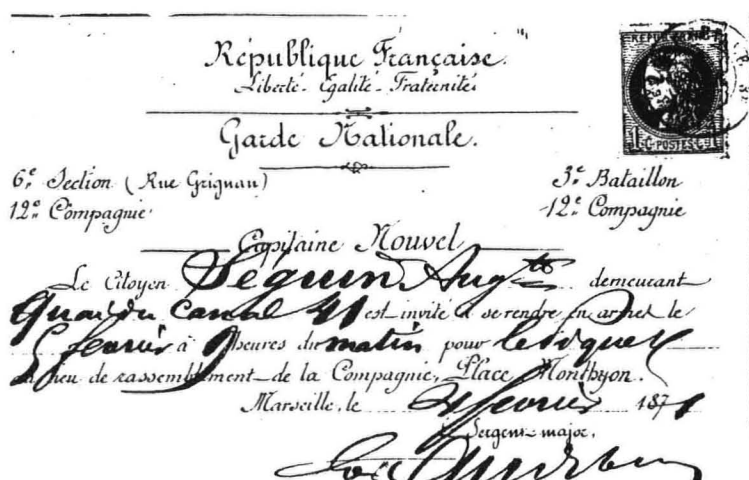 République Française.
Liberté - Egalité - Fraternité.
Garde Nationale.
6e Section (Rue Grignan)
12e Compagnie
3e Bataillon
12e Compagnie
REPUB FRANC
1 C. POSTES C. 1
Capitaine Nouvel
Le Citoyen Séguin Augte demeurant
Quai du Canal 41 est invité à se rendre en armes le
5 février à 9 heures du matin pour le piquet
au lieu de rassemblement de la Compagnie, Place Monthyon.
Marseille, le 4 février 1871
Le Sergent-major,